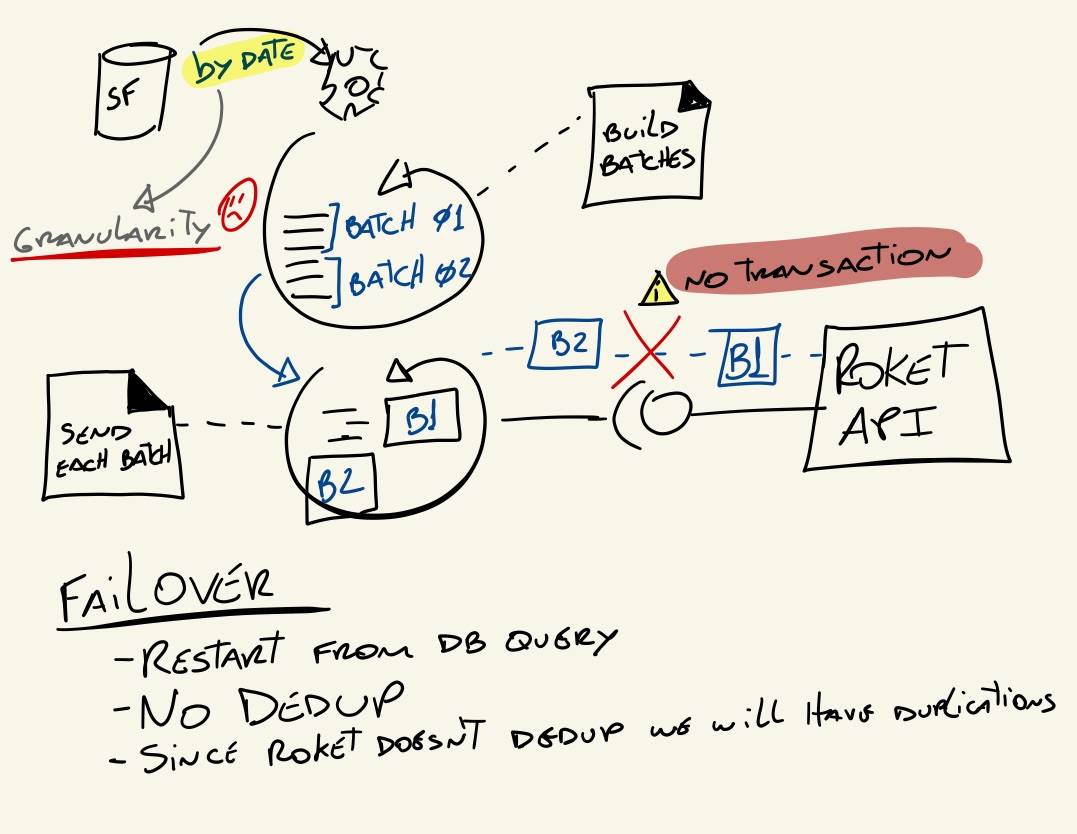 by DATE
SF
BUILD
BATCHES
GRANULARITY
BATCH 01
BATCH 02
NO TRANSACTION
B2
B1
ROKET
API
SEND
EACH BATCH
B1
B2
FAILOVER
- RESTART FROM DB QUERY
- NO DEDUP
- SINCE ROKET DOESN'T DEDUP WE WILL HAVE DUPLICATIONS